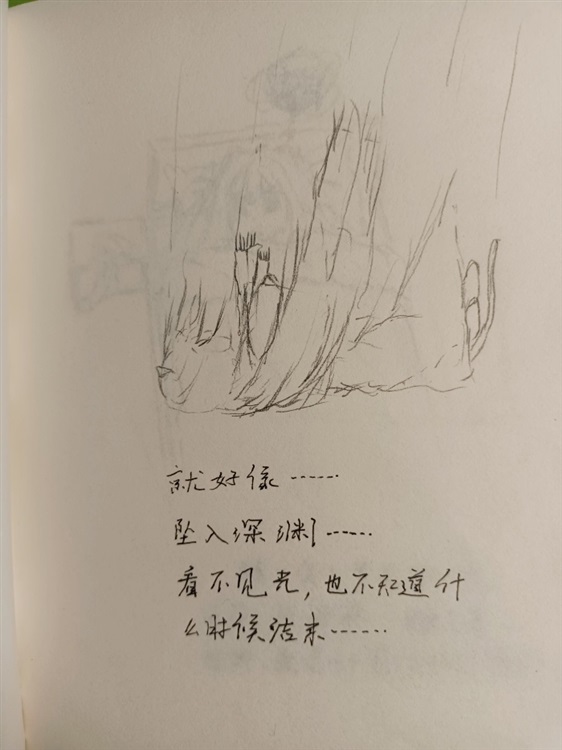 就好像……
坠入深渊……
看不见光，也不知道什
么时候结束……